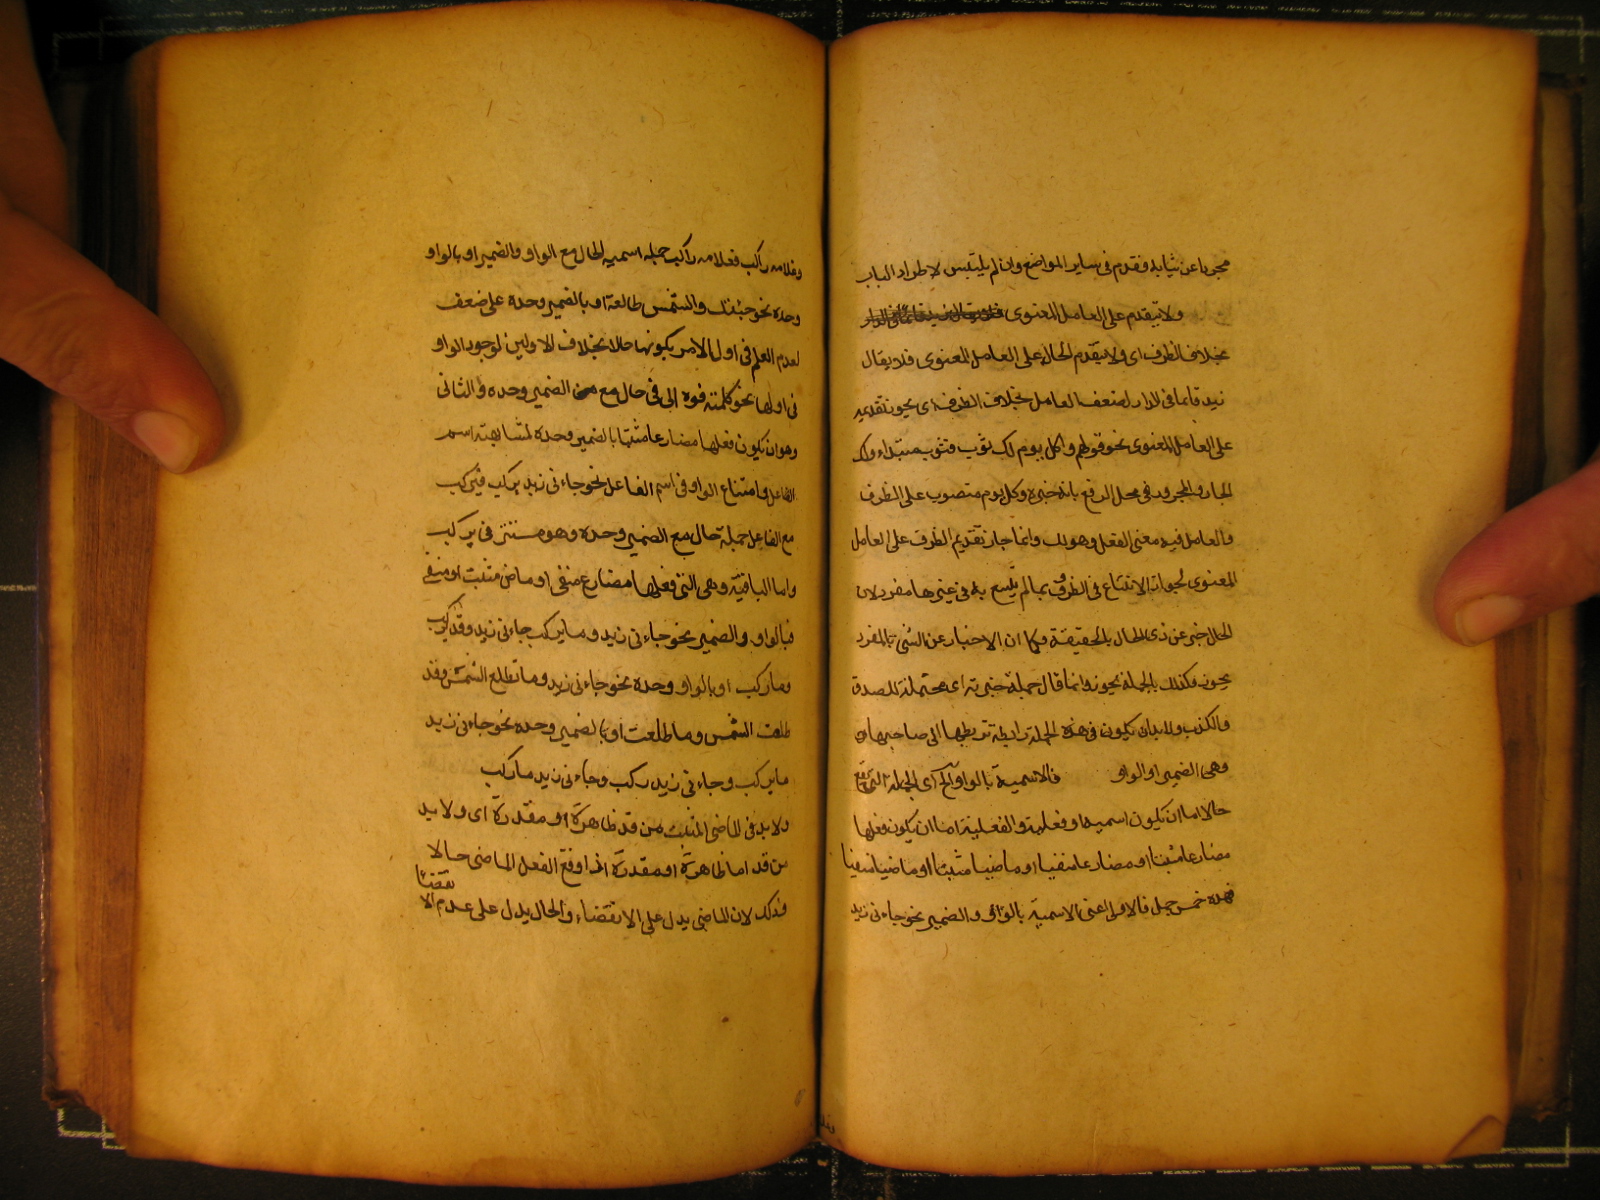 مجردا عن ثيابه فقدم فى ساير المواضع وان لم يلتبس لاطراد الباب
ولا يتقدم على العامل المعنوى
بخلاف الظرف اى ولا يتقدم الحال على العامل المعنوى فلا يقال
زيد قايما فى الدار لضعف العامل بخلاف الظرف اى يجوز تقديمه
على العامل المعنوى نحو قولهم اكل يوم لك ثوب فثوب مبتداء ولك
الجار والمجرور فى محل الرفع بانه خبره وكل يوم منصوب على الظرف
والعامل فيه معنى الفعل وهو لك وانما جاز تقديم الظرف على العامل
المعنوى لجواز الاتساع فى الظروف بما لم يتسع به فى غيرها مفرد لان
الحال خبر عن ذى الحال بالحقيقة وكما ان الاخبار عن الشئ بالمفرد
يجوز فكذلك بالجملة يجوز وانما قال جملة خبرية اى محتملة للصدق
والكذب ولا بد ان يكون فى هذه الجملة رابطة تربطها الى صاحبها
وهى الضمير او الواو فالاسمية بالواو آلخ اى الجملة التى تقع
حالا اما ان يكون اسمية او فعلية والفعلية اما ان يكون فعلها
مضارعا مثبتا او مضارعا منفيا او ماضيا مثبتا او ماضيا منفيا
فهذه خمس جمل فالاولى اعنى الاسمية بالواو والضمير نحو جاءنى زيد
وغلامه راكب فغلامه راكب جملة اسمية لحال مع الواو والضمير او بالواو
وحده نحو جئتك والشمس طالعة او بالضمير وحده على ضعف
لعدم العلم فى اول الامر بكونها حالا بخلاف الاولين لوجود الواو
فى اولها نحو كلمته فوه الى فى حال مع الضمير وحده والثانى
وهو ان يكون فعلها مضارعا مثبتا بالضمير وحده لمشابهته اسم
الفاعل وامتناع الواو فى اسم الفاعل نحو جاءنى زيد يركب فيركب
مع الفاعل جملة حال مع الضمير وحده وهو مستتر فى يركب
واما الباقية وهى التى فعلها مضارع منفى او ماض مثبت او منفى
فبالواو والضمير نحو جاءنى زيد وما يركب جاءنى زيد وقد ركب
وما ركب او بالواو وحده نحو جاءنى زيد وما تطلع الشمس وقد
طلعت الشمس وما طلعت او بالضمير وحده نحو جاءنى زيد
ما يركب وجاءنى زيد ركب وجاءنى زيد ما ركب
ولا بد فى الماضى المثبت من قد ظاهرة او مقدرة اى ولا بد
من قد اما ظاهرة او مقدرة اذا وقع الفعل الماضى حالا
وذلك لان الماضى يدل على الانقضاء والحال يدل على عدم الا
نقضا